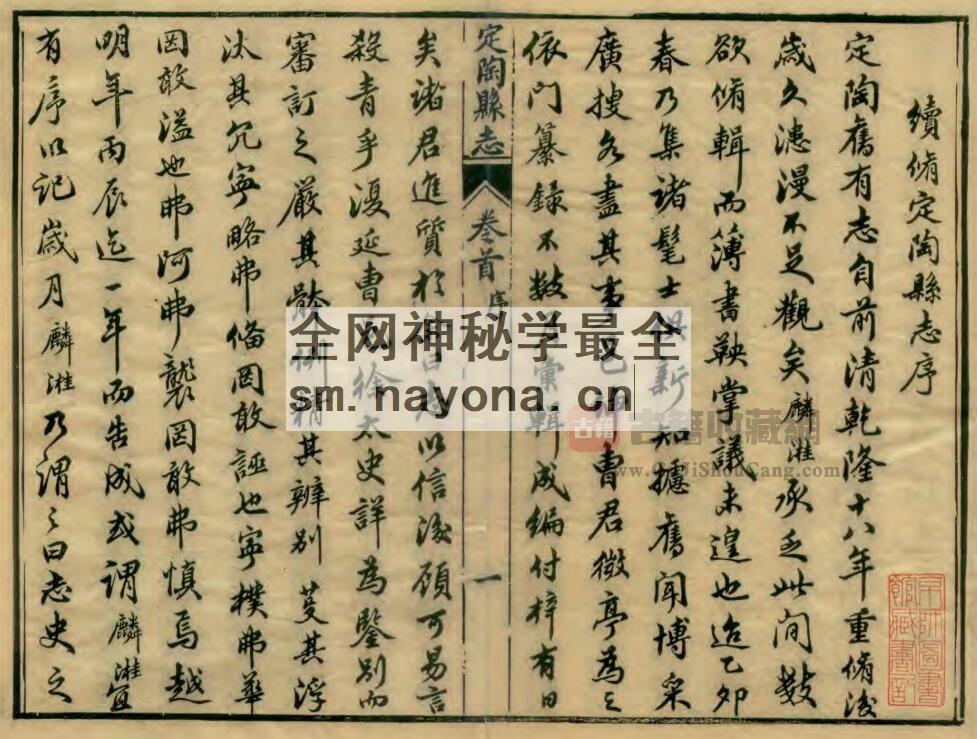 續脩定陶縣志序
定陶舊有志自前清乾隆十八年重脩後
歲久漶漫不足觀矣麟淮承乏此间數
欲脩輯而簿書鞅掌議未遑也迨乙卯
春乃集諸髦士 新知攄舊聞博采
廣搜 盡其事邑 曹君微亭為之
依门纂録不數 彙輯成编付梓有日
定陶縣志 卷首 序 一
矣諸君進質於 以信後顧可易言
殺青乎漫延曹 徐太史詳為鑒别而
審訂之嚴其 精其辨别芟其浮
汰其冗寧略弗偹罔敢誣也寧樸弗華
罔敢溢也弗阿弗襲罔敢弗慎焉越
明年丙辰迄一年而告成或谓麟淮宜
有序以記歲月麟淮乃謂之曰志史之
全网神秘学最全
sm.nayona.cn
古籍收藏網
www.GuJiShouCang.com